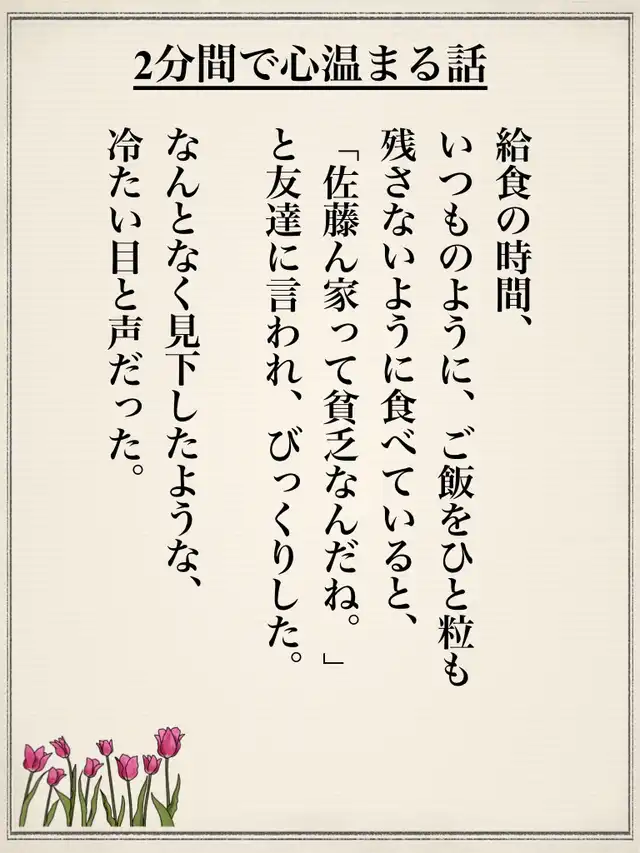 2分間で心温まる話
給食の時間、
いつものように、ご飯をひと粒も
残さないように食べていると、
「佐藤ん家って貧乏なんだね。」
と友達に言われ、びっくりした。
なんとなく見下したような、
冷たい目と声だった。